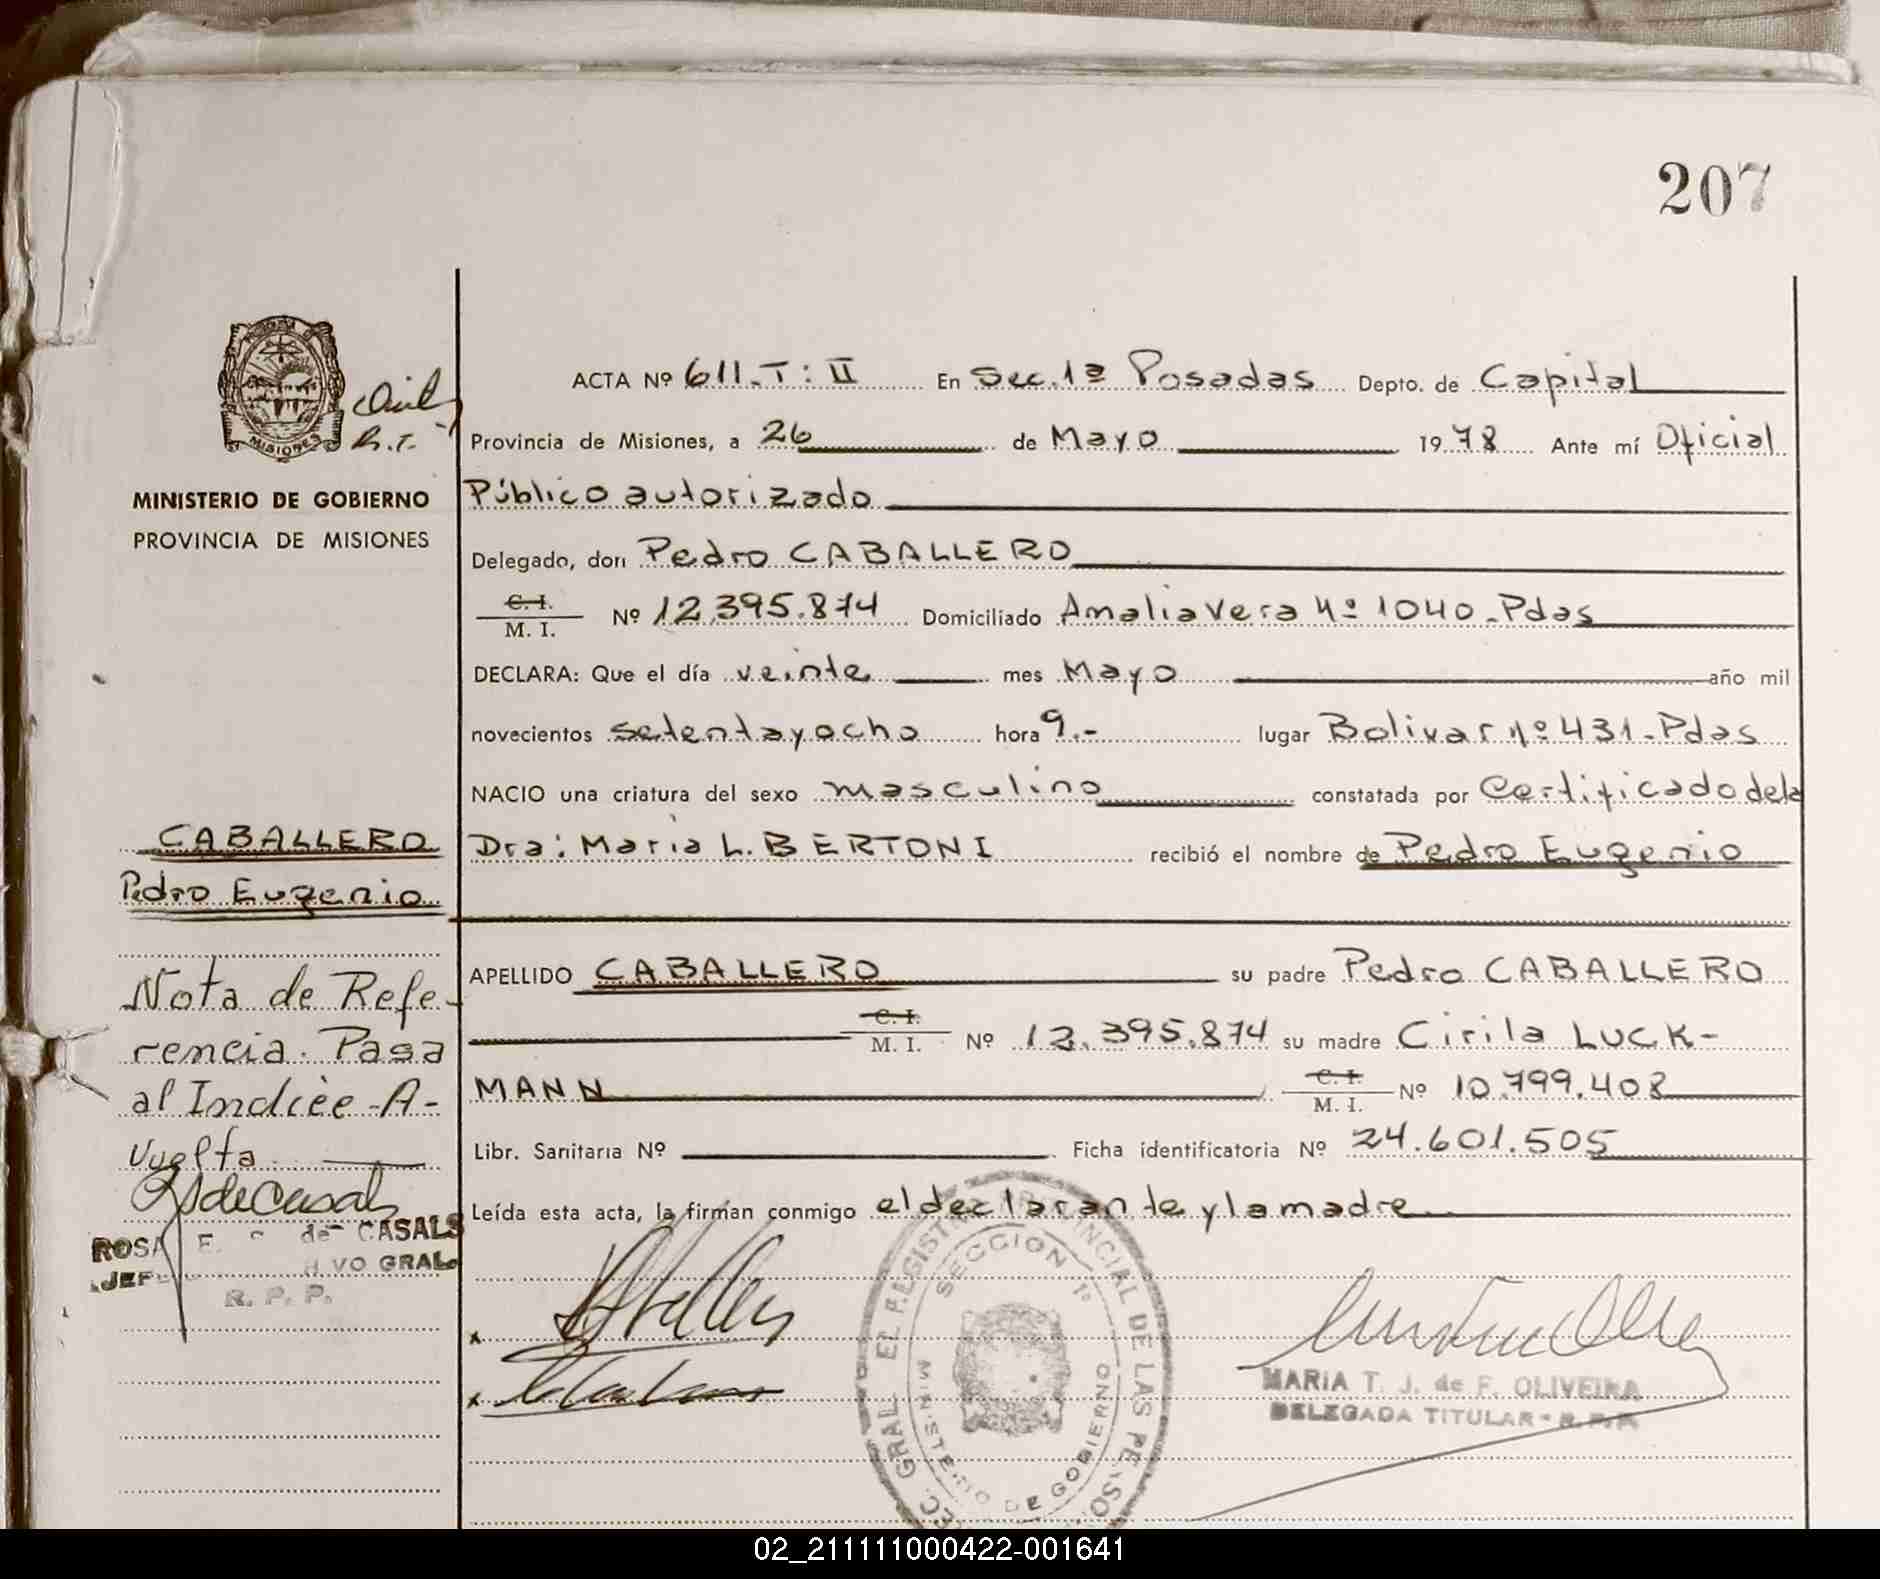 207
ACTA Nº 611.T: II En Sec. 1ª Posadas Depto. de Capital
Provincia de Misiones, a 26 de Mayo 1978 Ante mí Oficial
MINISTERIO DE GOBIERNO
PROVINCIA DE MISIONES
MISIONES
Público autorizado
Delegado, don Pedro CABALLERO
C. I.
M. I. Nº 12.395.874 Domiciliado Amalia Vera nº 1040.-Pdas
DECLARA: Que el día veinte mes Mayo año mil
novecientos setentayocho hora 9.- lugar Bolivar nº 431.-Pdas
NACIO una criatura del sexo masculino constatada por Certificado dela
CABALLERO
Dra: Maria L. BERTONI recibió el nombre de Pedro Eugenio
Pedro Eugenio
APELLIDO CABALLERO su padre Pedro CABALLERO
C. I.
M. I. Nº 12.395.874 su madre Cirila LUCK-
MANN C. I.
M. I. Nº 10.799.408
Libr. Sanitaria Nº Ficha identificatoria Nº 24.601.505
Leída esta acta, la firman conmigo el declarante y la madre
Nota de Refe-
rencia. Pasa
al Indice -A-
vuelta
ROSA E. de CASALS
GRAL
R. P. P.
SECCION 1ª
MINISTERIO DE GOBIERNO
MARIA T. J. de F. OLIVEIRA
DELEGADA TITULAR - R. P. P.
02_211111000422-001641